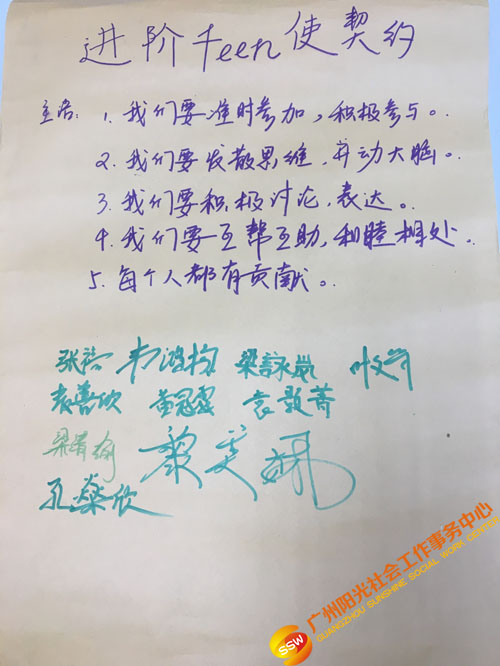 进阶teen使契约
主语：1. 我们要准时参加，积极参与。
2. 我们要发散思维，开动大脑。
3. 我们要积极讨论，表达。
4. 我们要互帮互助，和睦相处。
5. 每个人都有贡献。
韦鸿 梁詠嵐
袁善欣 黄冠雯 袁敦菁
梁
黎雯
孔燊欣
广州阳光社会工作事务中心
GUANGZHOU SUNSHINE SOCIAL WORK CENTER
SSW